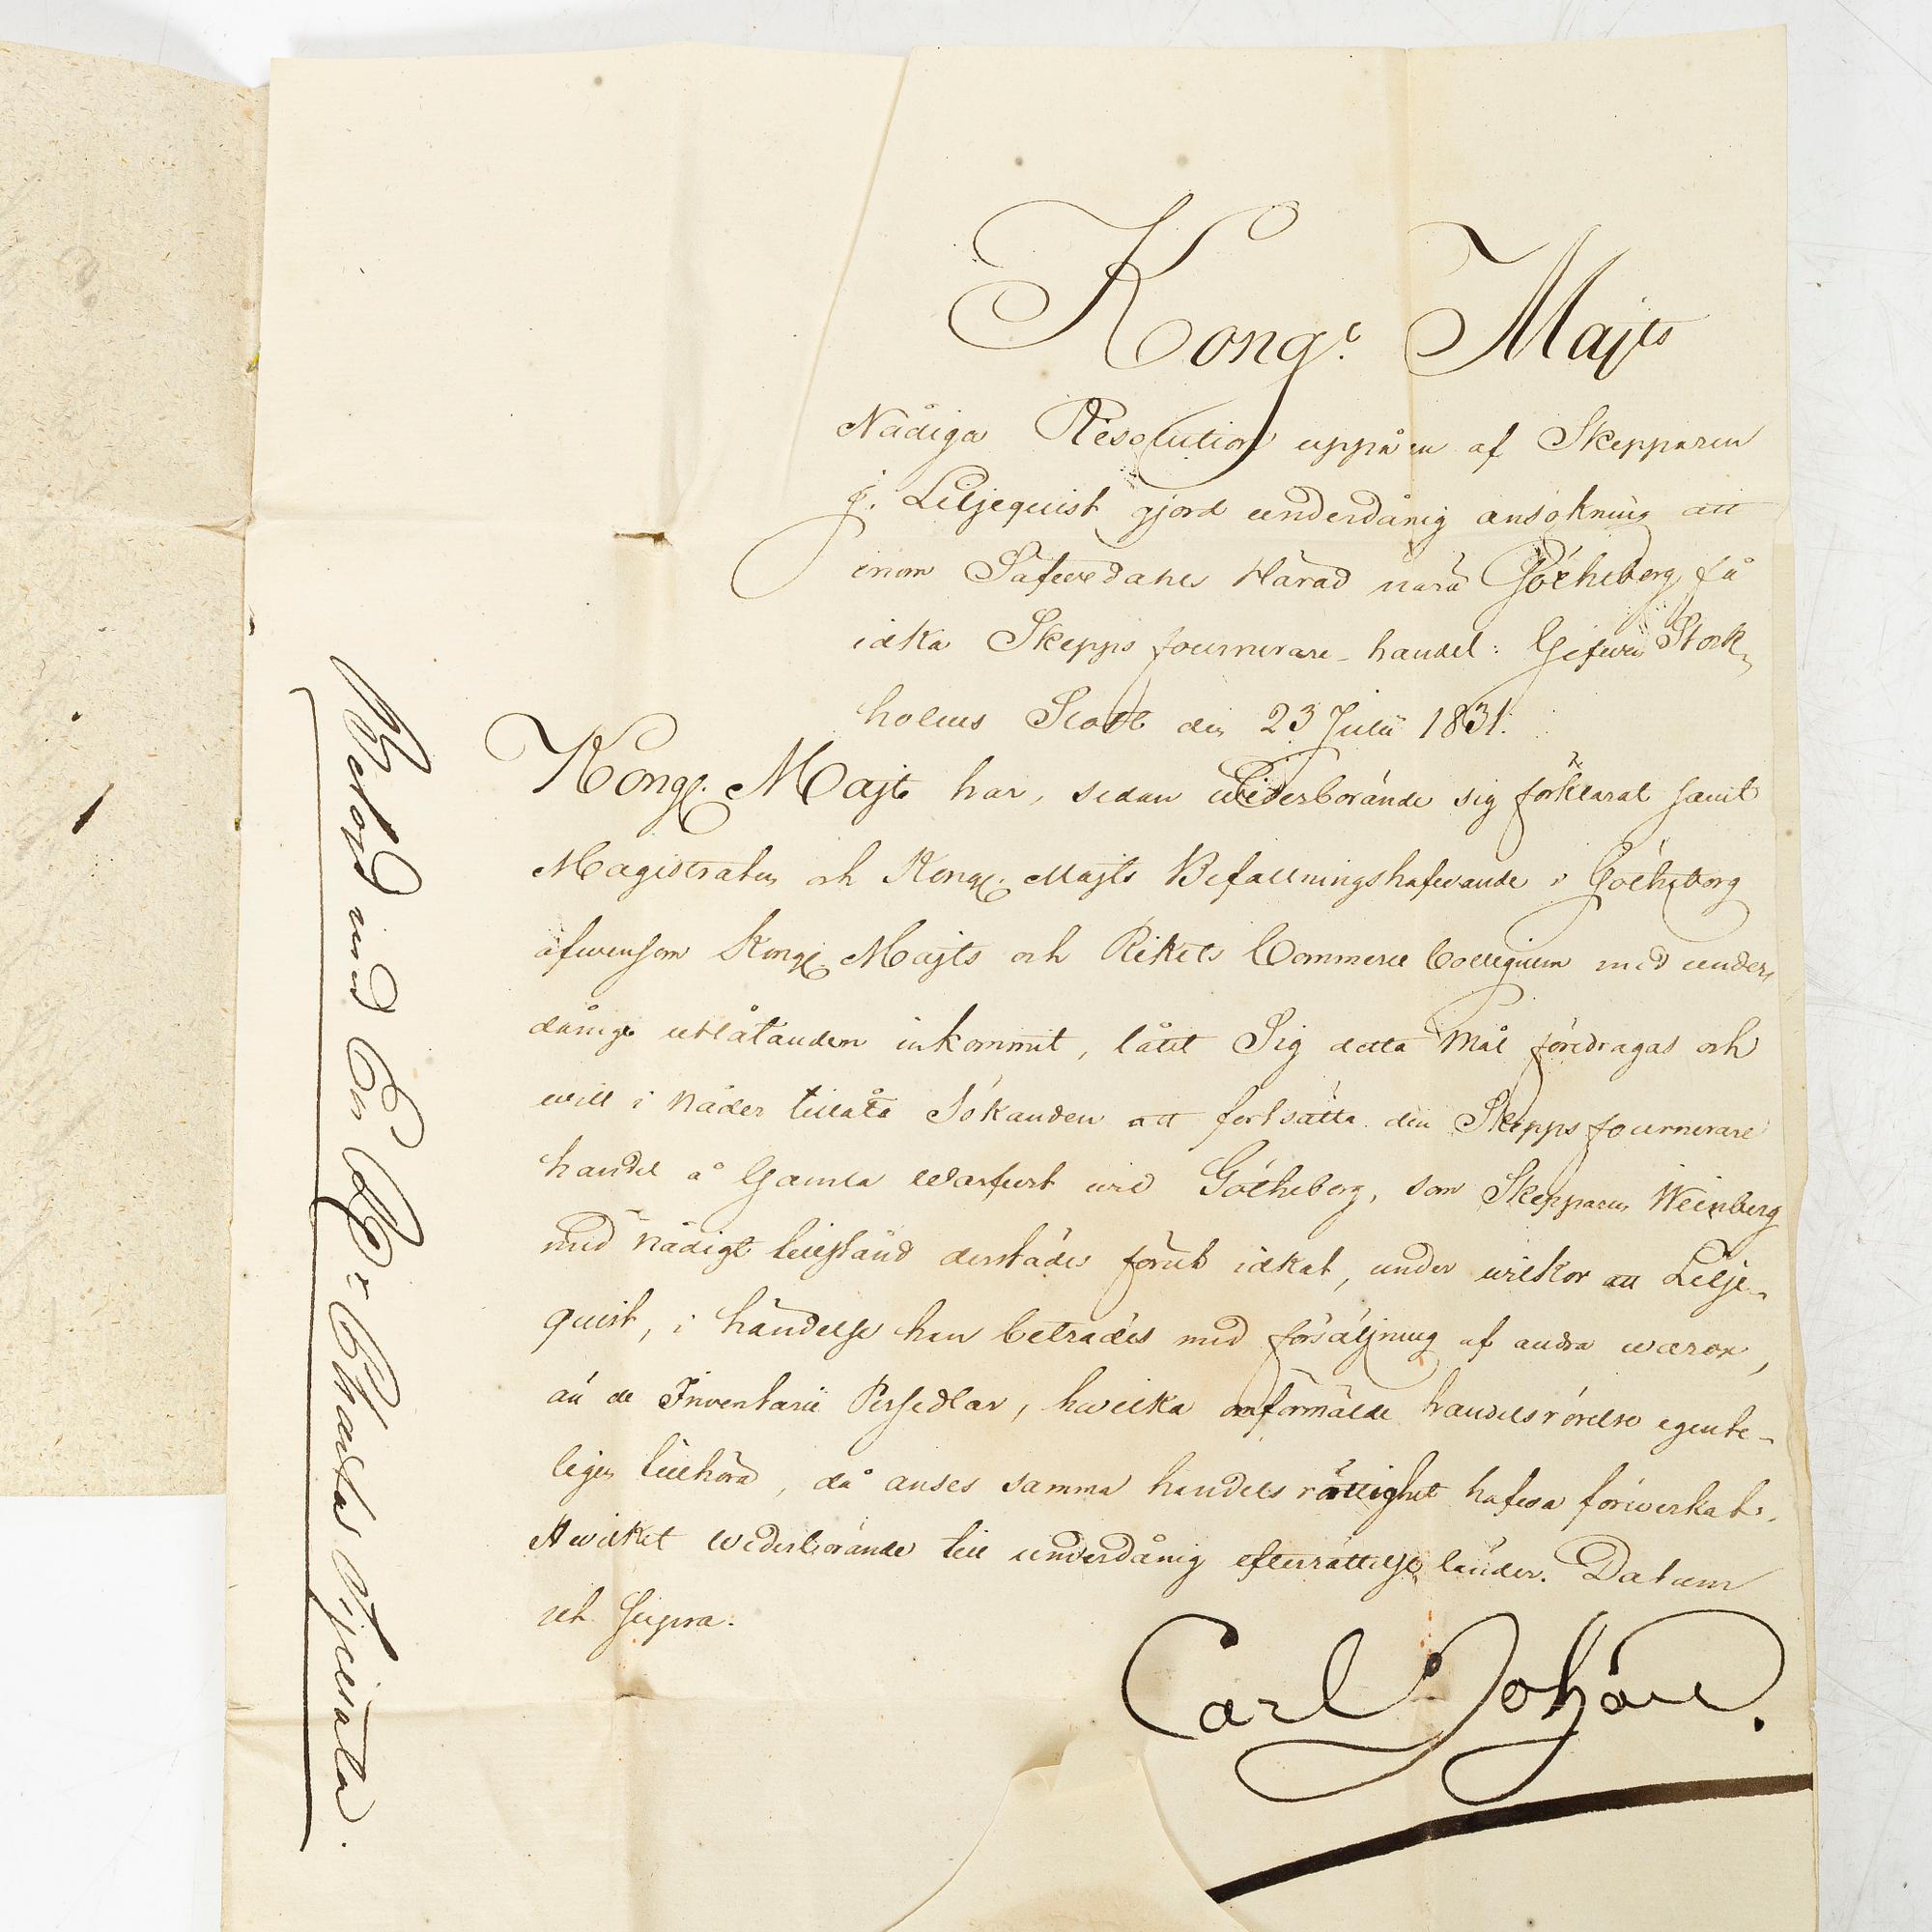 Kongl. Majts
Nådiga Resolution uppå en af Skepparen
J. Liljequist gjord underdånig ansökning att
inom Säfvedahls Härad nära Götheborg få
idka Skepps fournerare-handel: Gifven Stock-
holms Slott den 23 Julii 1831.
Kongl. Majt har, sedan wederbörande sig förklarat samt
Magistraten och Kongl. Majts Befallningshafvande i Götheborg
äfvensom Kongl. Majts och Rikets Commerce Collegium med under-
dånige utlåtanden inkommit, låtit Sig detta mål föredragas och
will i nåder tillåta Sökanden att fortsätta den Skepps fournerare
handel å Gamla Warfvet wid Götheborg, som Skepparen Weinberg
med nådigt tillstånd derstädes förut idkat, under wilkor att Lilje-
quist, i händelse han beträdes med försäljning af andra waror,
än de Inventarii Persedlar, hwilka omförmälde handelsrörelse egente-
ligen tillhöra, då anses samma handels rättighet hafva förwerkat.
Hwilket wederbörande till underdånig efterrättelse länder. Datum
ut supra.
Carl Johan.
Belagd med En Rdr Charta Sigillata.